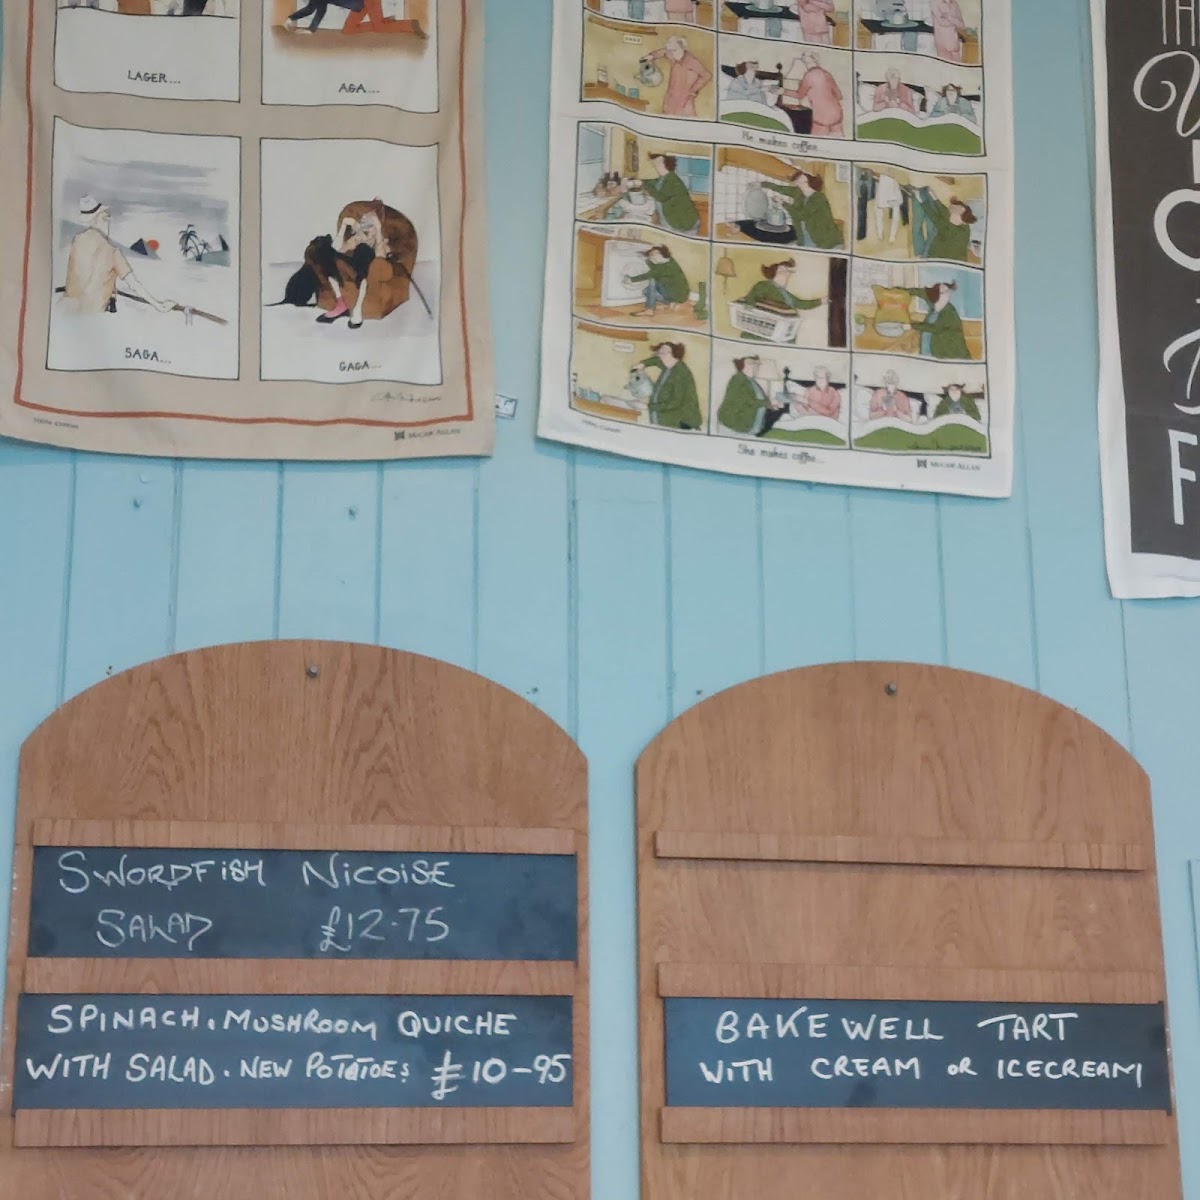 LAGER...
AGA...
SAGA...
GAGA...
100% COTTON
McCAW ALLAN
He makes coffee...
She makes coffee...
McCAW ALLAN
TH
F
SWORDFISH NICOISE
SALAD £12.75
SPINACH. MUSHROOM QUICHE
WITH SALAD. NEW POTATOES £10-95
BAKEWELL TART
WITH CREAM OR ICECREAM